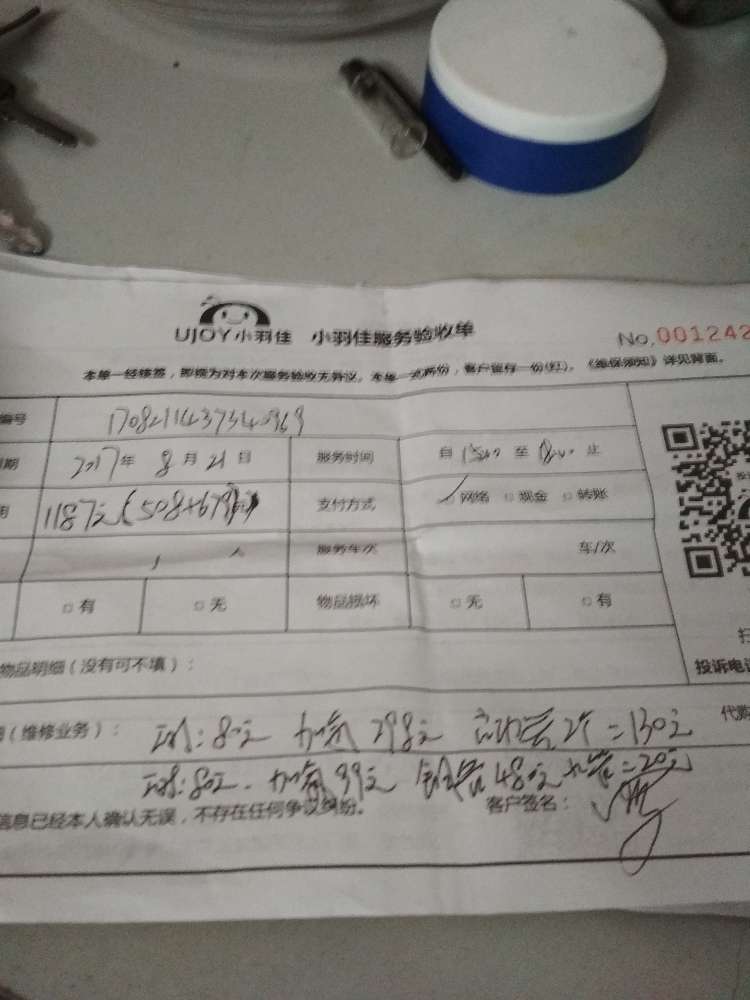 UJOY小羽佳 小羽佳服务验收单
No.001242
本单一经签签，即视为对本次服务验收无异议。本单一式两份，客户留存一份(红)。《维保须知》详见背面。
编号
期 2017年 8月21日 服务时间 自 至 止
1187元(508+679) 支付方式 网络 现金 转账
服务车次 车/次
有 无 物品损坏 无 有
物品明细（没有可不填）：
投诉电
(维修业务)： 80元 加氟 298元 =130元 代购
80元 加氟 99元 480元 =20元
信息已经本人确认无误，不存在任何争议纠纷。 客户签名：